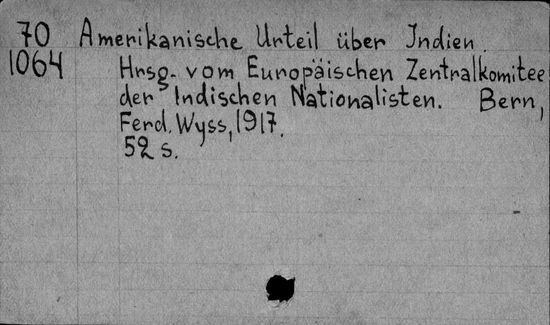 70 Amerikanische Urteil über Indien.
1064 Hrsg. vom Europäischen Zentralkomitee
der Indischen Nationalisten. Bern,
Ferd. Wyss, 1917.
52 s.